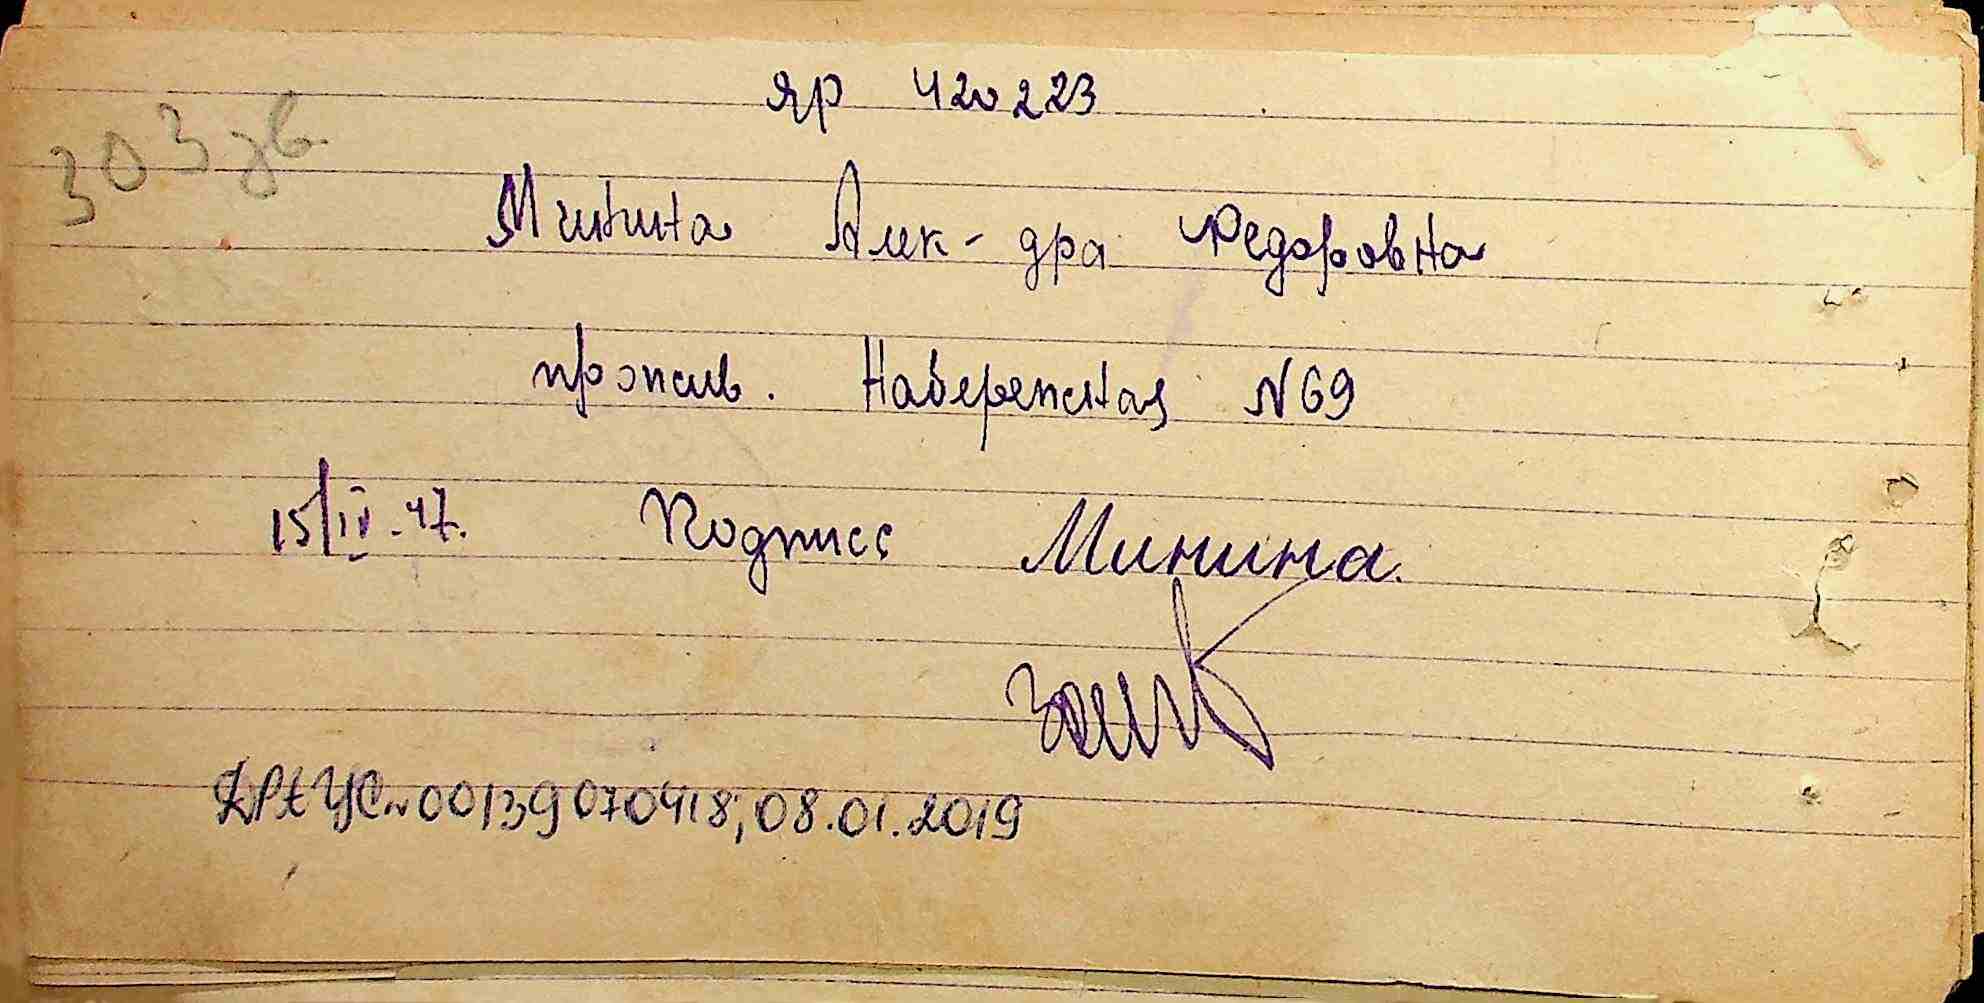 яр 420223
303 дв.
Минина Алек-дра Федоровна
прожив. Набережная N 69
15/IV-47. Подпись Минина.
ДРЕУС~00139070418; 08.01.2019